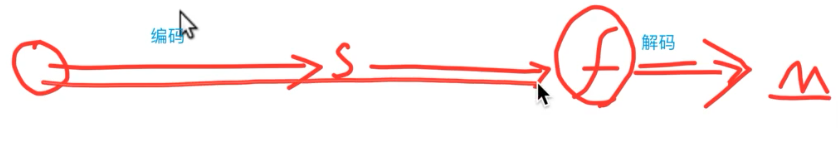 编码 S f 解码 m